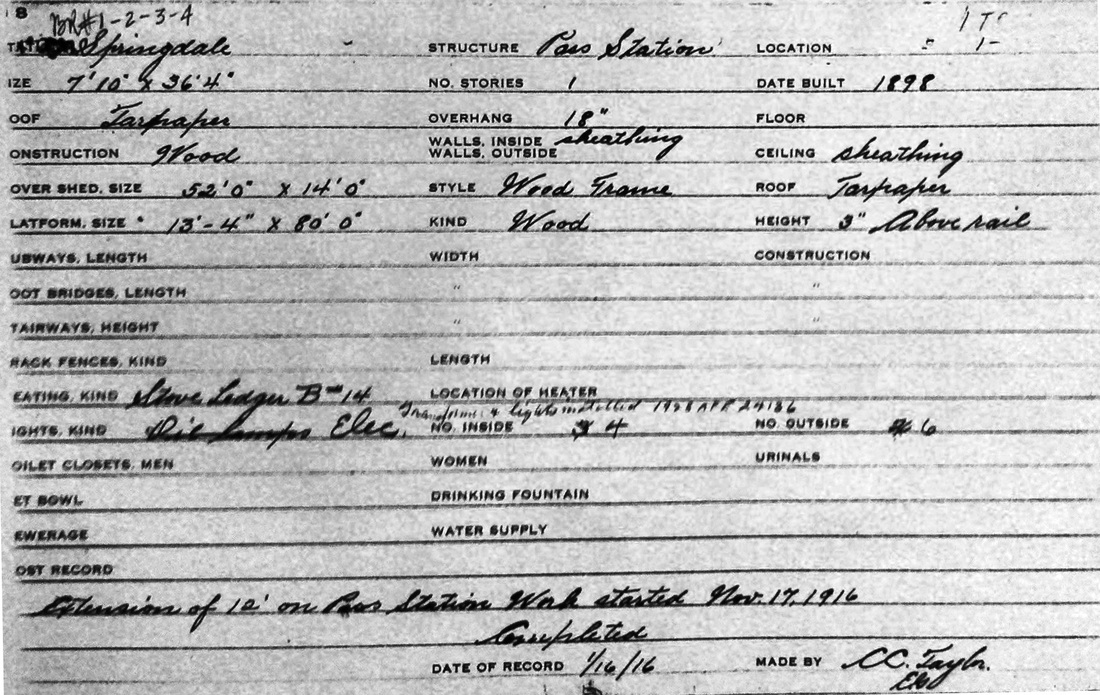 8 BR#1-2-3-4
Springdale STRUCTURE Pass Station LOCATION
IZE 7'10" x 36'4" NO. STORIES 1 DATE BUILT 1898
OOF Tarpaper OVERHANG 18" FLOOR
ONSTRUCTION Wood WALLS, INSIDE sheathing WALLS, OUTSIDE CEILING sheathing
OVER SHED, SIZE 52'0" x 14'0" STYLE Wood Frame ROOF Tarpaper
LATFORM, SIZE 13'-4" x 80'0" KIND Wood HEIGHT 3" Above rail
UBWAYS, LENGTH WIDTH CONSTRUCTION
OOT BRIDGES, LENGTH " "
TAIRWAYS, HEIGHT " "
RACK FENCES, KIND LENGTH
EATING, KIND Stove Ledger B-14 LOCATION OF HEATER
& lights installed
IGHTS, KIND Oil Lamps Elec. NO. INSIDE 4 NO. OUTSIDE 6
OILET CLOSETS, MEN WOMEN URINALS
ET BOWL DRINKING FOUNTAIN
EWERAGE WATER SUPPLY
OST RECORD
Extension of 12' on Pass Station Work started Nov. 17, 1916
Completed
DATE OF RECORD 1/16/16 MADE BY CC. Taylor.